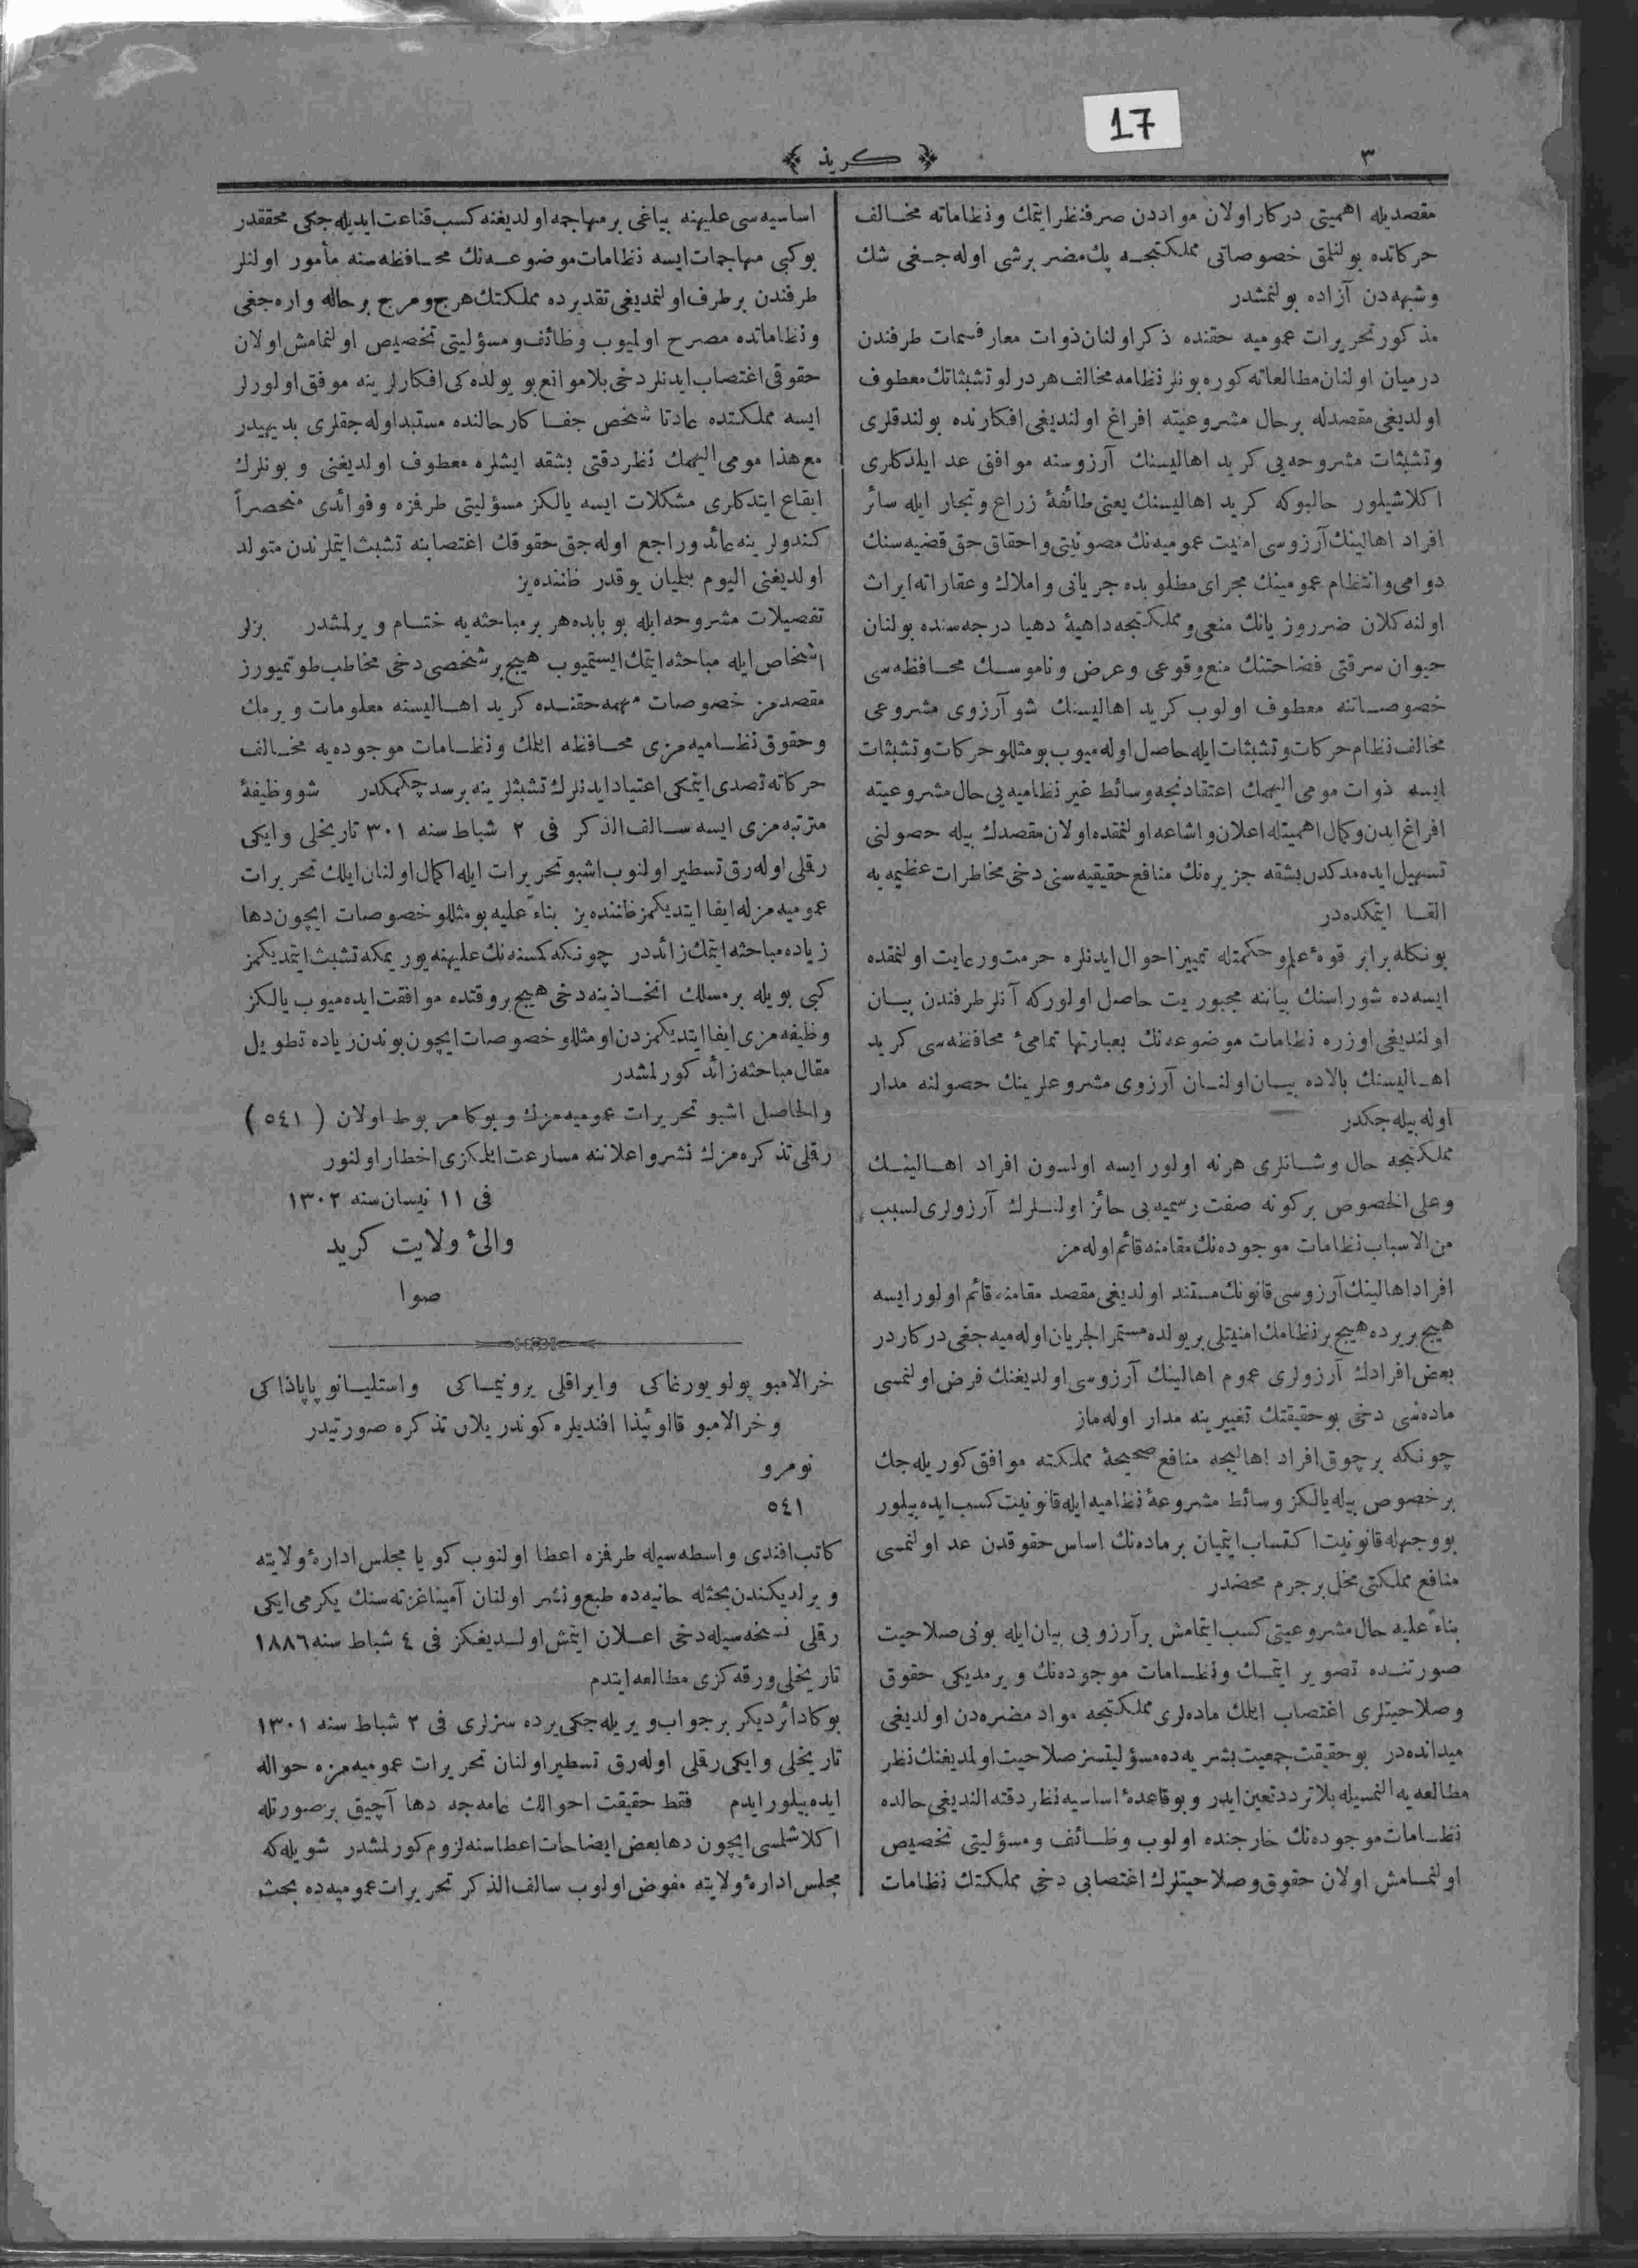 17
٣
﴿ كريد ﴾
مقصديله اهميتى دركار اولان مواددن صرفنظر ايتمك ونظاماته مخالف
حركاتده بولنلمق خصوصاتى مملكتجه پك مضر برشى اوله جغى شك
وشبهه دن آزاده بولنمشدر
مذكور تحريرات عموميه حقنده ذكر اولنان ذوات معارفسمات طرفندن
درميان اولنان مطالعاته كوره بونلر نظامه مخالف هر درلو تشبثاتك معطوف
اولديغى مقصدله برحال مشروعيته افراغ اولنديغى افكارنده بولندقلرى
وتشبثات مشروحه يى كريد اهاليسنك آرزوسنه موافق عد ايلدكلرى
اكلاشيلور حالبوكه كريد اهاليسنك يعنى طائفۀ زراع وتجار ايله سائر
افراد اهالينك آرزوسى امنيت عموميه نك مصونيتى واحقاق حق قضيه سنك
دوامى وانتظام عمومينك مجراى مطلوبده جريانى واملاك وعقاراته ايراث
اولنه كلان ضرر وزيانك منعى ومملكتجه داهيۀ دهيا درجه سنده بولنان
حيوان سرقتى فضاحتنك منع وقوعى وعرض وناموسك محافظه سى
خصوصاتنه معطوف اولوب كريد اهاليسنك شو آرزوى مشروعى
مخالف نظام حركات وتشبثات ايله حاصل اوله ميوب بو مثللو حركات وتشبثات
ايسه ذوات مومى اليهمك اعتقادنجه وسائط غير نظاميه يى حال مشروعيته
افراغ ايدن وكمال اهميتله اعلان واشاعه اولنمقده اولان مقصدك بيله حصولنى
تسهيل ايده مدكدن بشقه جزيره نك منافع حقيقيه سنى دخى مخاطرات عظيمه يه
القا ايتمكده در
بونكله برابر قوۀ علم وحكمتله تمييز احوال ايدنلره حرمت ورعايت اولنمقده
ايسه ده شوراسنك بياننه مجبوريت حاصل اولور كه آنلر طرفندن بيان
اولنديغى اوزره نظامات موضوعه نك بعبارتها تمامئ محافظه سى كريد
اهاليسنك بالاده بيان اولنان آرزوى مشروعلرينك حصولنه مدار
اوله بيله جكدر
مملكتجه حال وشانلرى هرنه اولور ايسه اولسون افراد اهالينك
وعلى الخصوص بركونه صفت رسميه يى حائز اولنلرك آرزولرى لسبب
من الاسباب نظامات موجوده نك مقامنه قائم اوله مز
افراد اهالينك آرزوسى قانونك مستند اولديغى مقصد مقامنه قائم اولور ايسه
هيچ بريرده هيچ برنظامك امنيتلى بريولده مستمر الجريان اوله ميه جغى دركاردر
بعض افرادك آرزولرى عموم اهالينك آرزوسى اولديغنك فرض اولنمسى
ماده سى دخى بو حقيقتك تغييرينه مدار اوله ماز
چونكه برچوق افراد اهاليجه منافع صحيحۀ مملكته موافق كوريله جك
برخصوص بيله يالكز وسائط مشروعۀ نظاميه ايله قانونيت كسب ايده بيلور
بو وجهله قانونيت اكتساب ايتميان برماده نك اساس حقوقدن عد اولنمسى
منافع مملكتى مخل برجرم محضدر
بناءً عليه حال مشروعيتى كسب ايتمامش برآرزويى بيان ايله بونى صلاحيت
صورتنده تصوير ايتمك ونظامات موجوده نك ويرمديكى حقوق
وصلاحيتلرى اغتصاب ايتمك ماده لرى مملكتجه مواد مضره دن اولديغى
ميدانده در بو حقيقت جمعيت بشريه ده مسؤليتسز صلاحيت اولمديغنك نظر
مطالعه يه النمسيله بلا تردد تعين ايدر وبو قاعدۀ اساسيه نظر دقته النديغى حالده
نظامات موجوده نك خارجنده اولوب وظائف ومسؤليتى تخصيص
اولنمامش اولان حقوق وصلاحيتلرك اغتصابى دخى مملكتك نظامات
اساسيه سى عليهنه بياغى برمهاجمه اولديغنه كسب قناعت ايديله جكى محققدر
بوكبى مهاجمات ايسه نظامات موضوعه نك محافظه سنه مأمور اولنلر
طرفندن برطرف اولنمديغى تقديرده مملكتك هرج ومرج برحاله واره جغى
ونظاماتده مصرح اولميوب وظائف ومسؤليتى تخصيص اولنمامش اولان
حقوقى اغتصاب ايدنلر دخى بلا موانع بو يولده كى افكارلرينه موفق اولورلر
ايسه مملكتده عادتا شخص جفاكار حالنده مستبد اوله جقلرى بديهيدر
مع هذا مومى اليهمك نظر دقتى بشقه ايشلره معطوف اولديغنى و بونلرك
ايقاع ايتدكلرى مشكلات ايسه يالكز مسؤليتى طرفزه وفوائدى منحصراً
كندولرينه عائد وراجع اوله جق حقوقك اغتصابنه تشبث ايتملرندن متولد
اولديغنى اليوم بيلميان يوقدر ظننده يز
تفصيلات مشروحه ايله بو بابده هر برمباحثه يه ختام ويرلمشدر بزلر
اشخاص ايله مباحثه ايتمك ايستميوب هيچ برشخصى دخى مخاطب طوتميورز
مقصدمز خصوصات مهمه حقنده كريد اهاليسنه معلومات ويرمك
وحقوق نظاميه مزى محافظه ايتمك ونظامات موجوده يه مخالف
حركاته تصدى ايتمكى اعتياد ايدنلرك تشبثلرينه برسد چكمكدر شو وظيفۀ
مترتبه مزى ايسه سالف الذكر فى ٢ شباط سنه ٣٠١ تاريخلى وايكى
رقملى اوله رق تسطير اولنوب اشبو تحريرات ايله اكمال اولنان ايلك تحريرات
عموميه مزله ايفا ايتديكمز ظننده يز بناءً عليه بو مثللو خصوصات ايچون دها
زياده مباحثه ايتمك زائددر چونكه كمسنه نك عليهنه يوريمكه تشبث ايتمديكمز
كبى بويله برمسلك اتخاذينه دخى هيچ بروقتده موافقت ايده ميوب يالكز
وظيفه مزى ايفا ايتديكمزدن او مثللو خصوصات ايچون بوندن زياده تطويل
مقال مباحثه زائد كورلمشدر
والحاصل اشبو تحريرات عموميه مزك وبوكا مربوط اولان ( ٥٤١ )
رقملى تذكره مزك نشر واعلاننه مسارعت ايتمكزى اخطار اولنور
فى ١١ نيسان سنه ١٣٠٢
والئ ولايت كريد
صوا
خرالامبو پولويورغاكى وايراقلى يرونيماكى واستليانو پاپاداكى
وخرالامبو قالوئيذا افنديلره كوندريلان تذكره صورتيدر
نومرو
٥٤١
كاتب افندى واسطه سيله طرفزه اعطا اولنوب كويا مجلس ادارۀ ولايته
ويرلديكندن بحثله حانيه ده طبع ونشر اولنان آميناغزته سنك يكرمى ايكى
رقملى نسخه سيله دخى اعلان ايتمش اولديغكز فى ٤ شباط سنه ١٨٨٦
تاريخلى ورقه كزى مطالعه ايتدم
بوكا دائر ديكر برجواب ويريله جكى يرده سزلرى فى ٢ شباط سنه ١٣٠١
تاريخلى وايكى رقملى اوله رق تسطير اولنان تحريرات عموميه مزه حواله
ايده بيلور ايدم فقط حقيقت احوالك عامه جه دها آچيق برصورتله
اكلاشلمسى ايچون دها بعض ايضاحات اعطاسنه لزوم كورلمشدر شويله كه
مجلس ادارۀ ولايته مفوض اولوب سالف الذكر تحريرات عموميه ده بحث